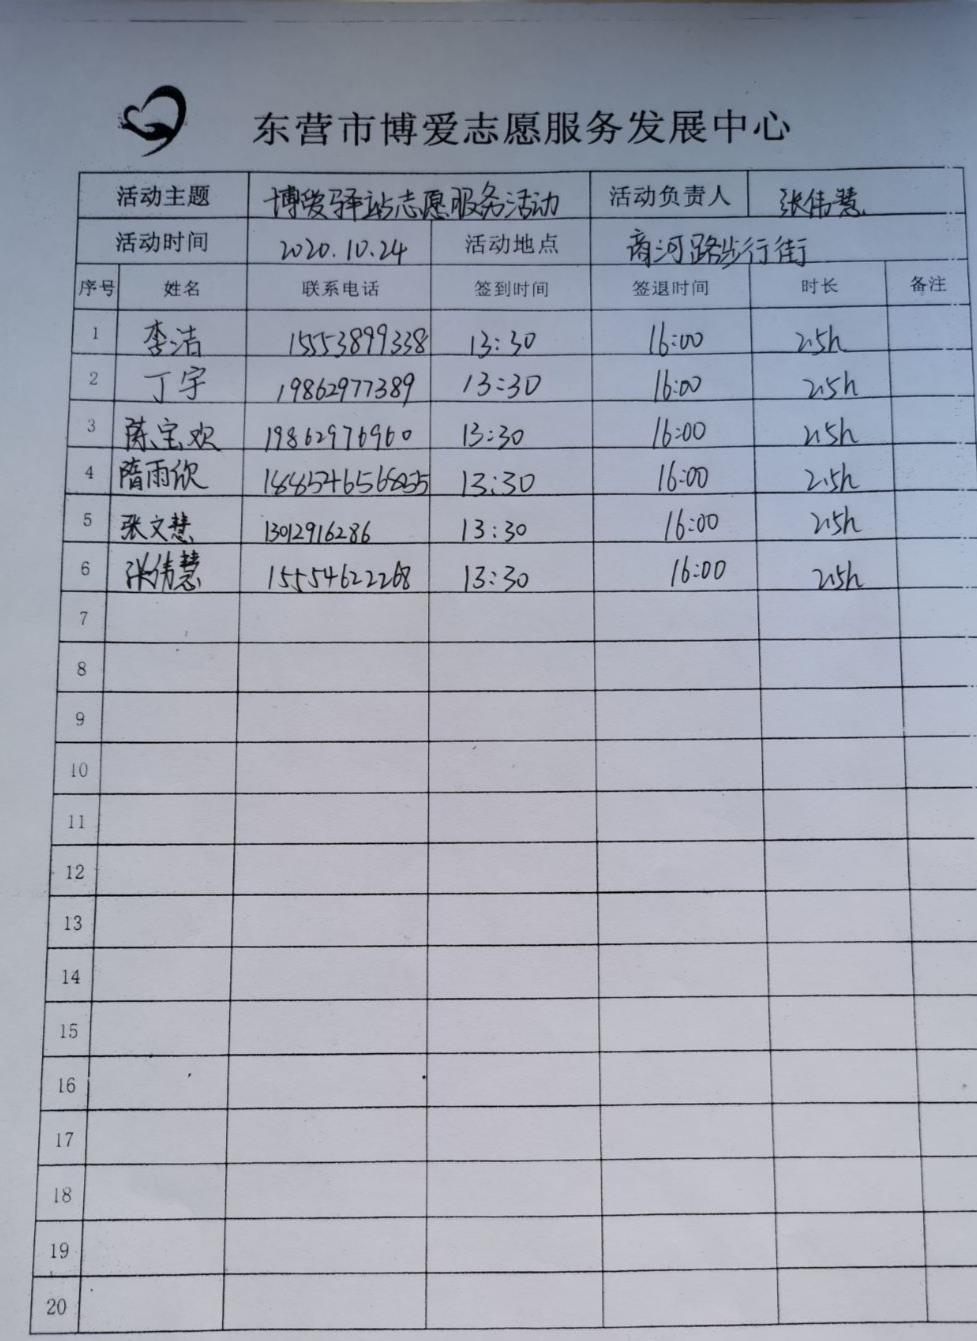 东营市博爱志愿服务发展中心
活动主题 博爱驿站志愿服务活动 活动负责人 张伟慧
活动时间 2020.10.24 活动地点 商河路步行街
序号 姓名 联系电话 签到时间 签退时间 时长 备注
1 李洁 15553899338 13:30 16:00 2.5h
2 丁宇 19862977389 13:30 16:00 2.5h
3 陈宝欢 19862976960 13:30 16:00 2.5h
4 隋雨欣 13:30 16:00 2.5h
5 张文慧 13012916286 13:30 16:00 2.5h
6 张伟慧 15554622268 13:30 16:00 2.5h
7
8
9
10
11
12
13
14
15
16
17
18
19
20